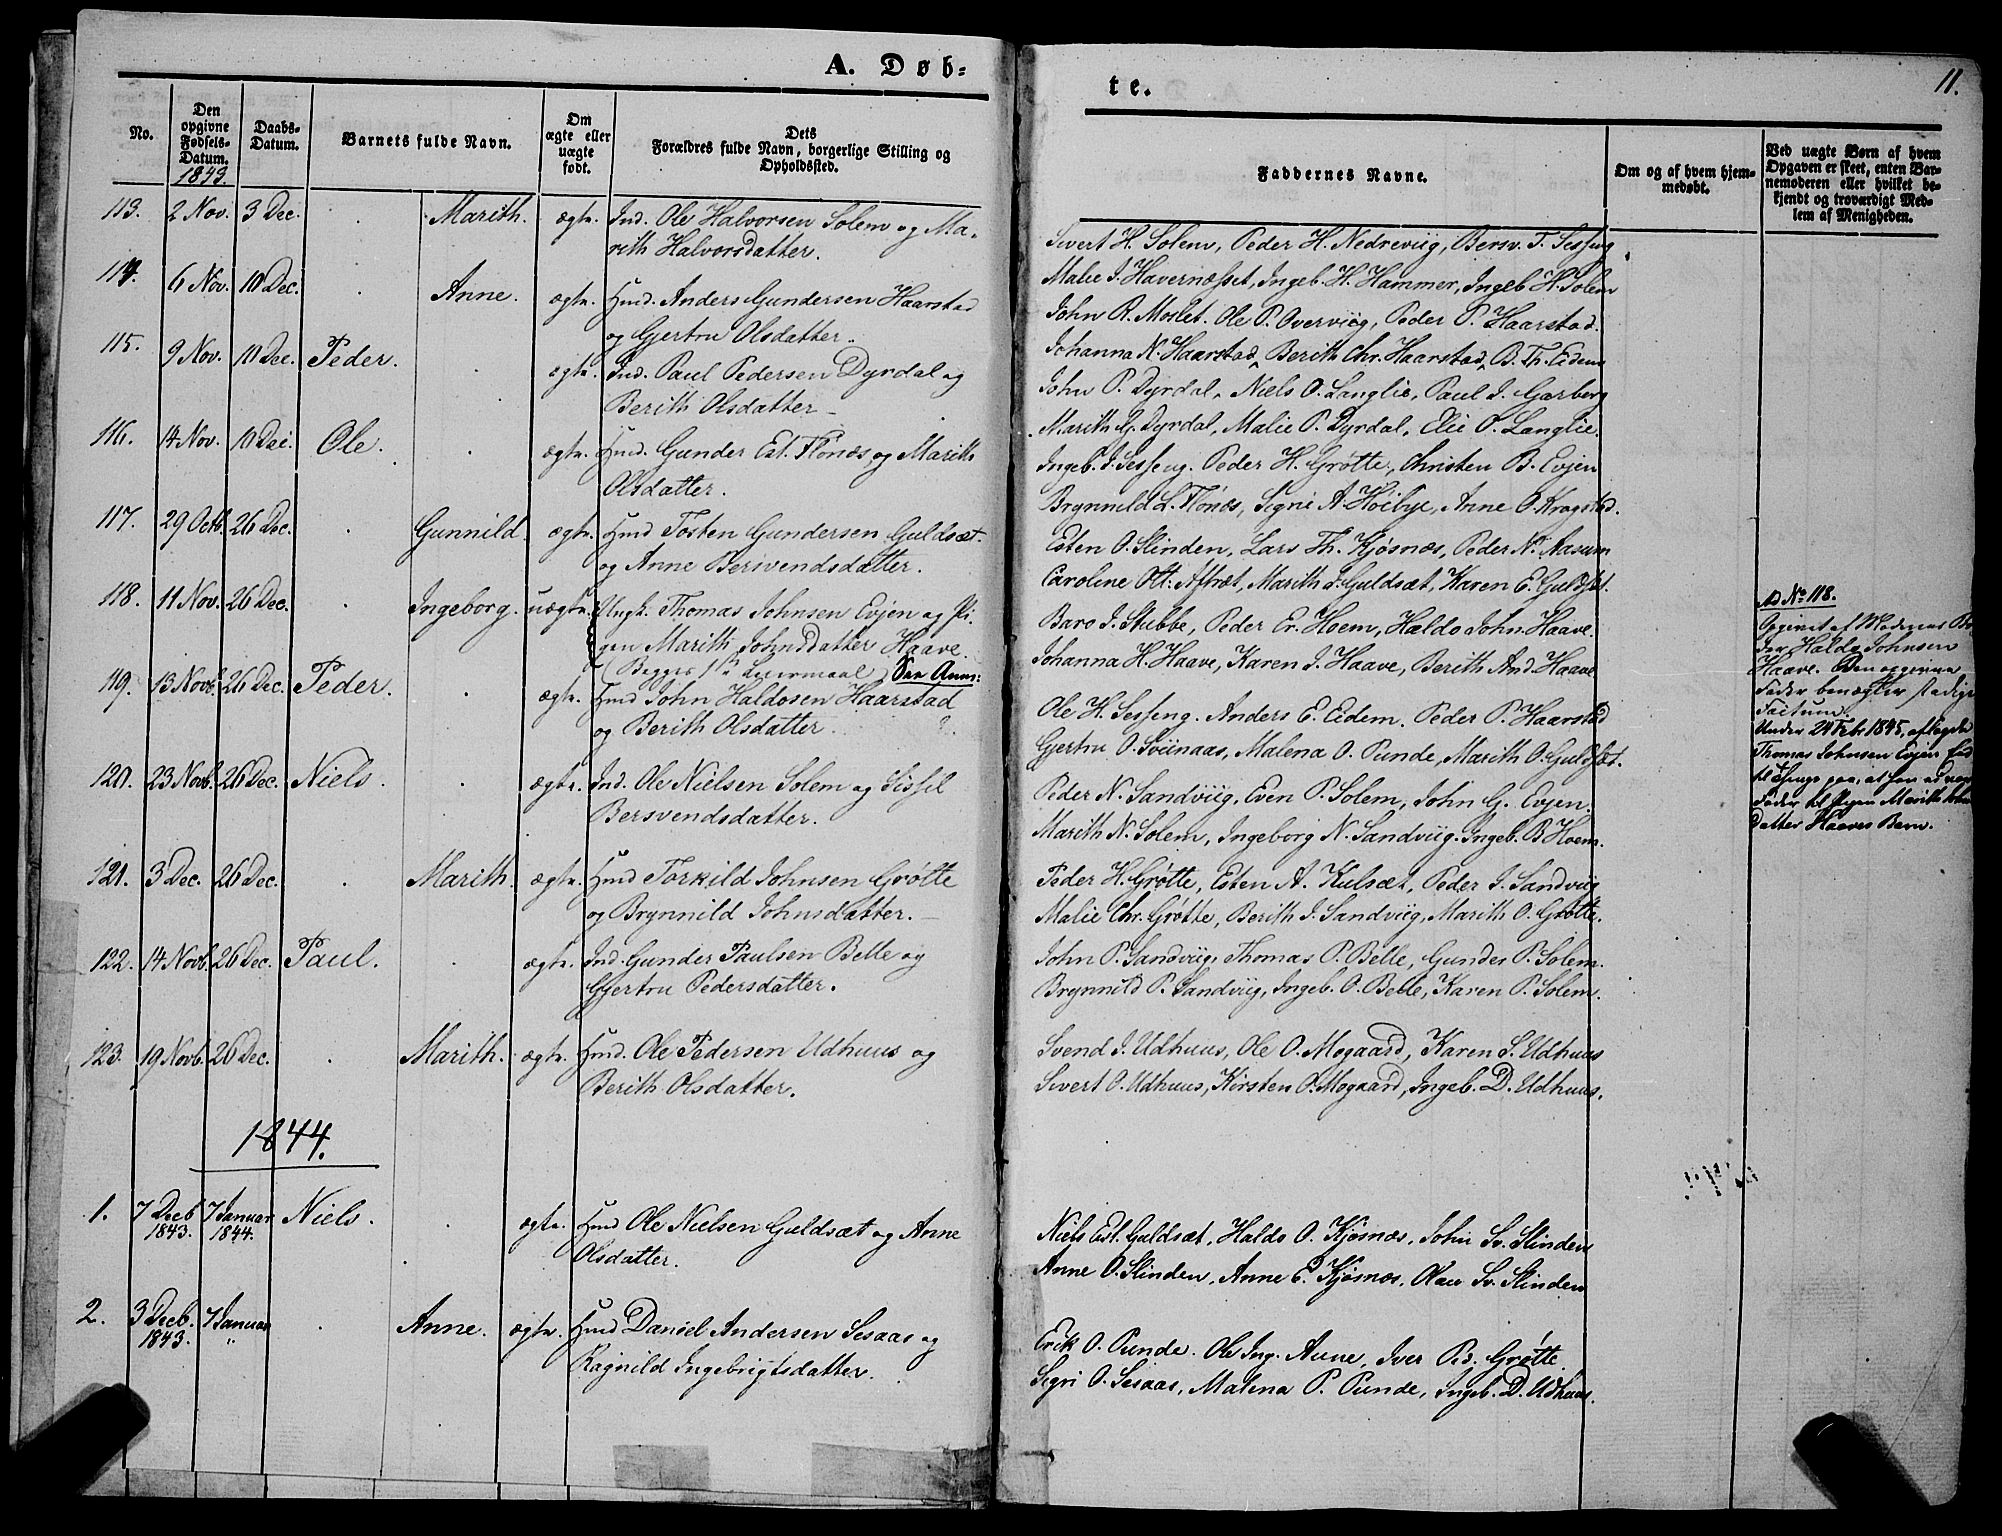 A. Døb-
No.
Den opgivne Fødsels-Datum. 1843.
Daabs-Datum.
Barnets fulde Navn.
Om ægte eller uægte født.
Dets Forældres fulde Navn, borgerlige Stilling og Opholdssted.
113. 2 Nov. 3 Dec. Marith. ægte. Ind. Ole Halvorsen Solem og Ma-
rith Halvorsdatter.
114. 6 Nov. 10 Dec. Anne. ægte. Hmd. Anders Gundersen Haarstad
og Gjertru Olsdatter.
115. 9 Nov. 10 Dec. Peder. ægte. Ind. Paul Pedersen Dyrdal og
Berith Olsdatter
116. 14 Nov. 10 Dec. Ole. ægte. Hmd. Gunder Est. Flönæs og Marith
Olsdatter.
117. 29 Octb. 26 Dec. Gunnild. ægte. Hmd Tosten Gundersen Guldsæt
og Anne Bersvendsdatter.
118. 11 Nov. 26 Dec. Ingeborg. uægte. Ungk. Thomas Johnsen Evjen og Pi-
gen Marith Johnsdatter Haave.
(Begges 1ste Leiermaal) See Anm:
119. 13 Novb. 26 Dec. Peder. ægte. Hmd John Haldosen Haarstad
og Berith Olsdatter.
120. 23 Novb. 26 Dec. Niels. ægte. Ind. Ole Nielsen Solem og Sissel
Bersvendsdatter.
121. 3 Dec. 26 Dec. Marith. ægte. Hmd Torkild Johnsen Grøtte
og Brynnild Johnsdatter.
122. 14 Novb. 26 Dec. Paul. ægte. Ind. Gunder Paulsen Belle og
Gjertru Pedersdatter.
123. 19 Novb. 26 Dec. Marith. ægte. Hmd. Ole Pedersen Udhuus og
Berith Olsdatter.
1844.
1. 7 Decb 1843. 7 Januar 1844. Niels. ægte. Hmd Ole Nielsen Guldsæt og Anne
Olsdatter.
2. 3 Decb. 1843. 7 Januar " Anne. ægte. Hmd Daniel Andersen Sesaas og
Ragnild Ingebrigtsdatter.
te.
11.
Faddernes Navne.
Om og af hvem hjem-
medøbt.
Ved uægte Børn af hvem
Opgaven er skeet, enten Bar-
nemoderen eller hvilket be-
kjendt og troværdigt Med-
lem af Menigheden.
Sivert H. Solem, Peder H. Nedreviig, Bersv. T. Sesseng
Malie J. Havernæsset, Ingeb. H. Hammer, Ingeb H. Solem
John R. Moslet. Ole P. Overviig, Peder P. Haarstad.
Johanna N. Haarstad, Berith Chr. Haarstad, B. Th. Eidem
John P. Dyrdal, Niels O. Langlie, Paul J. Garberg
Marith G. Dyrdal, Malie P. Dyrdal, Elie O. Langlie.
Ingeb. J. Sesseng. Peder H. Grøtte, Christen B. Evjen
Brynnild L. Flönæs, Sigrie A. Höibye, Anne O. Kragstad.
Esten O. Slinden, Lars Th. Kjøsnæs, Peder N. Aasum
Caroline Ott: Aftret, Marith J. Guldsæt, Karen E. Guldsæt.
Baro J. Stubbe, Peder Er. Hoem, Haldo John. Haave.
Johanna H. Haave, Karen J. Haave, Berith And. Haave
Ole H. Sesseng. Anders E. Eidem. Peder P. Haarstad
Gjertru O. Sviinaas, Malena O. Punde, Marith O. Guldsæt.
Peder N. Sandviig, Even P. Solem, John G. Evjen.
Marith N. Solem, Ingeborg N. Sandviig. Ingeb. B Hoem.
Peder H. Grøtte, Esten A. Kulsæt, Peder J. Sandviig
Malie Chr. Grøtte, Berith J. Sandviig, Marith O. Grøtte.
John P. Sandviig, Thomas P. Belle, Gunder P. Solem.
Brynnild P. Sandviig, Ingeb. O. Belle, Karen P. Solem.
Svend J. Udhuus, Ole O. Mogaard, Karen S. Udhuus
Sivert O. Udhuus, Kirsten O. Mogaard, Ingeb. D. Udhuus.
Niels Est. Guldsæt, Haldo O. Kjøsnæs, John Sv. Slinden
Anne O. Slinden, Anne E. Kjøsnæs, Olau Sv. Slinden
Erik O. Punde. Ole Ing. Aune, Iver Ped. Grøtte.
Sigri O. Sesaas, Malena P. Punde, Ingeb. D. Udhuus.
Ad No 118.
Opgivet af Moderens Bro-
der Haldo Johnsen
Haave. Den opgivne
Fader benægter stadigt
Factum.
Under 24 Feb. 1845, aflagde
Thomas Johnsen Evjen Eed
til Thinge paa, at han ei var
Fader til Pigen Marith Johns
datter Haaves Barn.